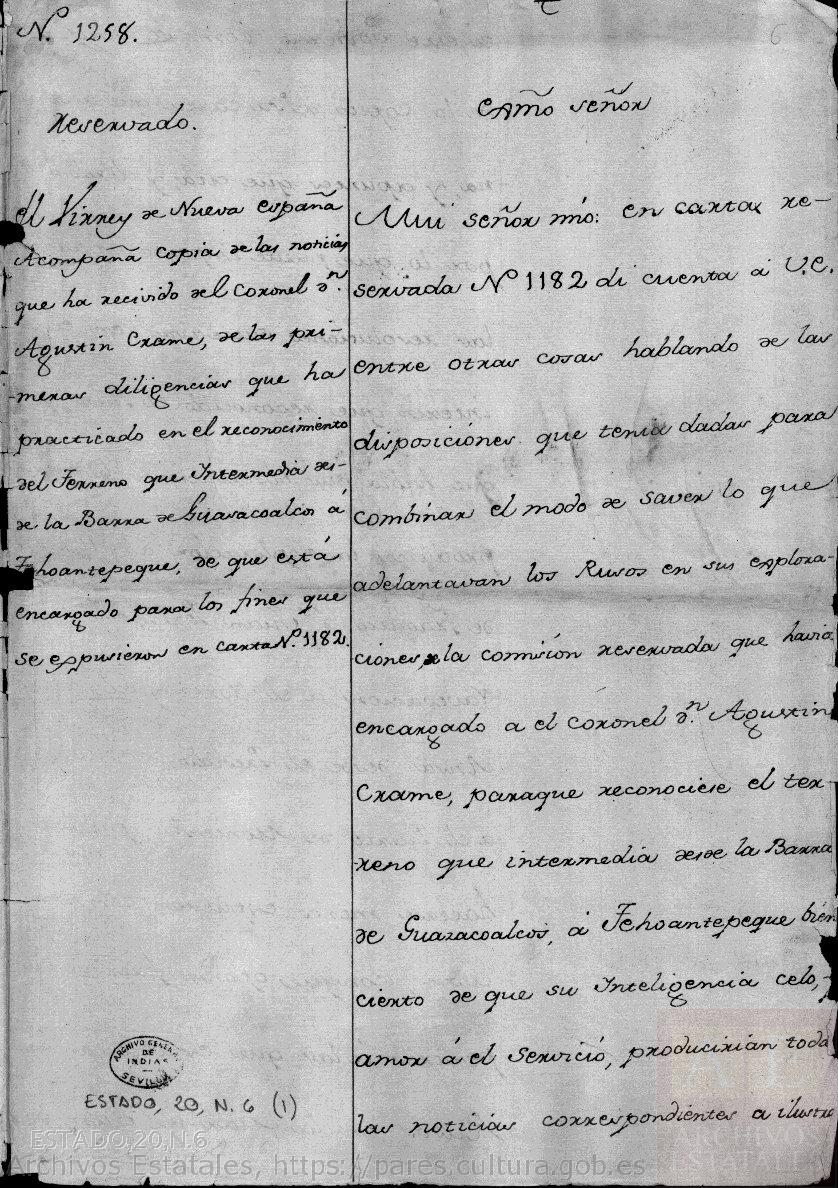 N.º 1258.
6
Reservado.
El Virrey de Nueva España
Acompaña copia de las noticias
que ha recivido del Coronel d.n
Agustin Crame, de las pri-
meras diligencias que ha
practicado en el reconocimiento
del Terreno que Intermedia des-
de la Barra de Guasacoalcos á
Tehoantepeque, de que está
encargado para los fines que
se expusieron en carta N.º 1182.
Exmô señor
Mui señor mio: en carta re-
servada Nº 1182 di cuenta á V.E.
entre otras cosas hablando de las
disposiciónes que tenia dadas para
combinar el modo de saver lo que
adelantavan los Rusos en sus explora-
ciones, de la comisión reservada que havia
encargado a el coronel d.n Agustin
Crame, paraque reconociese el ter-
reno que intermedia desde la Barra
de Guazacoalcos, á Tehoantepeque bien
cierto de que su Inteligencia celo, y
amor á el servicio, producirian todas
las noticias correspondientes a ilustra
ARCHIVO GENERAL
DE
INDIAS
SEVILLA
ESTADO, 20, N. 6 (1)
ESTADO,20,N.6
Archivos Estatales, https://pares.cultura.gob.es
ARCHIVOS
ESTATALES